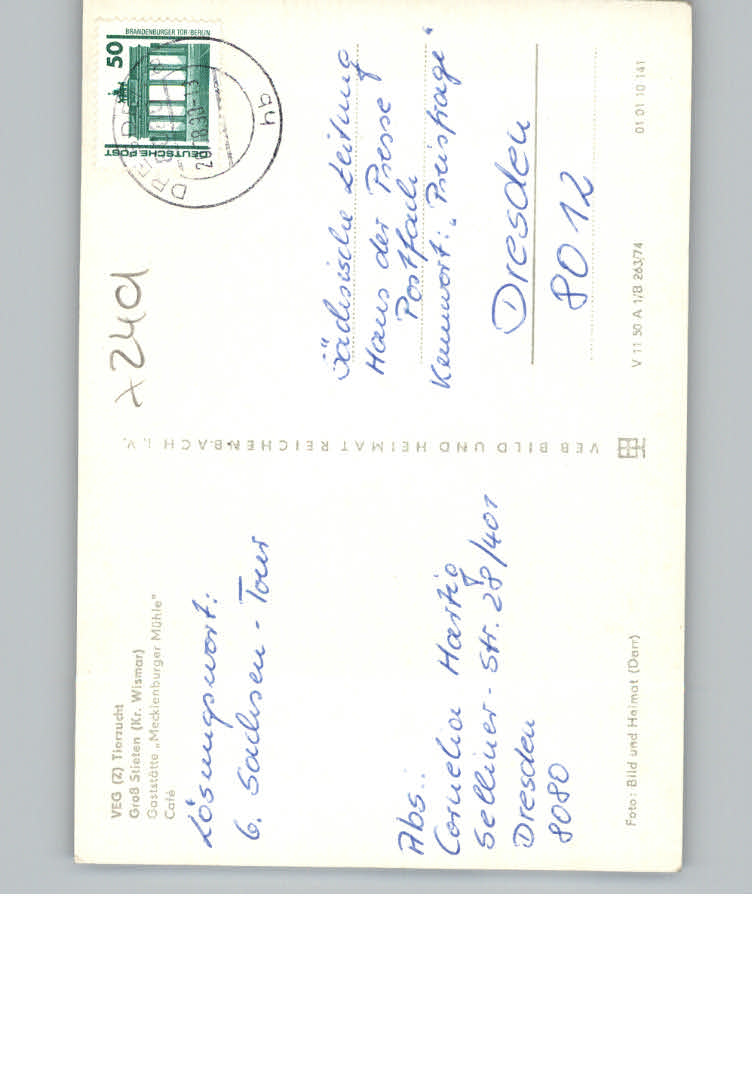 VEG (Z) Tierzucht
Groß Stieten (Kr. Wismar)
Gaststätte „Mecklenburger Mühle"
Café
Lösungswort:
6. Sachsen-Tour
Abs.:
Cornelia Hartig
Selliner-Str. 28/401
Dresden
8080
Foto: Bild und Heimat (Darr)
VEB BILD UND HEIMAT REICHENBACH I. V.
x 24d
BRANDENBURGER TOR/BERLIN
50
DEUTSCHE POST
DRESDEN
hb
Sächsische Zeitung
Haus der Presse
Postfach
Kennwort: „Preisfrage"
Dresden
8012
V 11 50 A 1/B 263/74
01 01 10 141